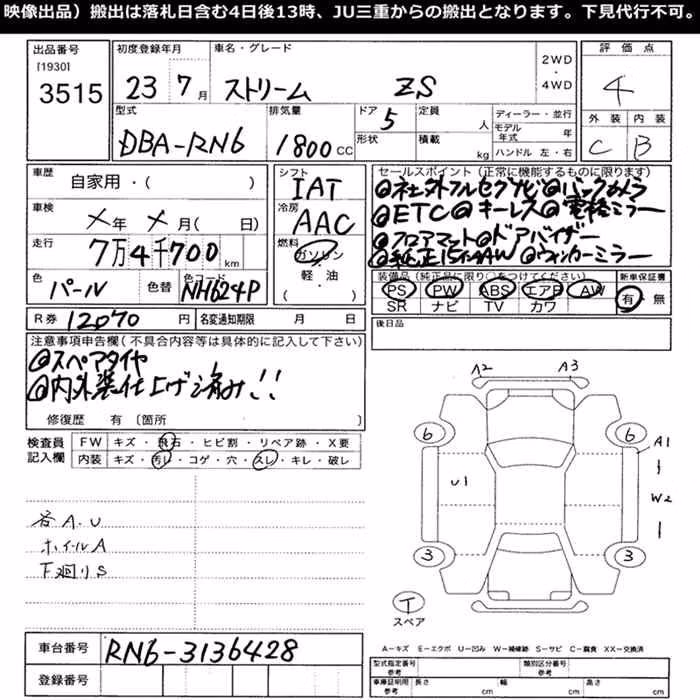 映像出品）搬出は落札日含む4日後13時、JU三重からの搬出となります。下見代行不可。
出品番号
[1930]
3515
初度登録年月
23 7 月
車名・グレード
ストリーム ZS
2WD
・
4WD
評価点
4
外装 内装
C B
型式
DBA-RN6
排気量
1800 CC
ドア 5
形状
定員
人
積載
kg
ディーラー・並行
モデル年式 年
ハンドル 左・右
車歴
自家用・( )
車検
メ年 メ月 ( 日)
走行
7万4千700 km
色
パール
色替
色コード
NH624P
シフト
IAT
冷房
AAC
燃料
ガソリン
・
軽・油
( )
セールスポイント (正常に機能するものに限ります)
@社外フルセグナビ@バックカメラ
@ETC@キーレス@電格ミラー
@フロアマット@ドアバイザー
@純正15インAW@ウィンカーミラー
装備品 (純正品に限り○をつけてください)
PS PW ABS エアB AW
SR ナビ TV カワ
新車保証書
有・無
R券 12070 円
名変通知期限 月 日
後日品
注意事項申告欄(不具合内容等は具体的に記入して下さい)
@スペアタイヤ
@内外装仕上げ済み!!
修復歴 有 [箇所 ]
検査員記入欄
FW キズ・飛石・ヒビ割・リペア跡・X要
内装 キズ・汚レ・コゲ・穴・スレ・キレ・破レ
各A.U
ホイールA
下廻りS
A2 A3
6 6
A1
U1
W2
3 3
T
スペア
A-キズ E-エクボ U-凹み W-補修跡 S-サビ C-腐食 XX-交換済
車台番号 RN6-3136428
登録番号
型式指定番号
参考
類別区分番号
参考
車庫証明用
参考
長さ cm 幅 cm 高さ cm